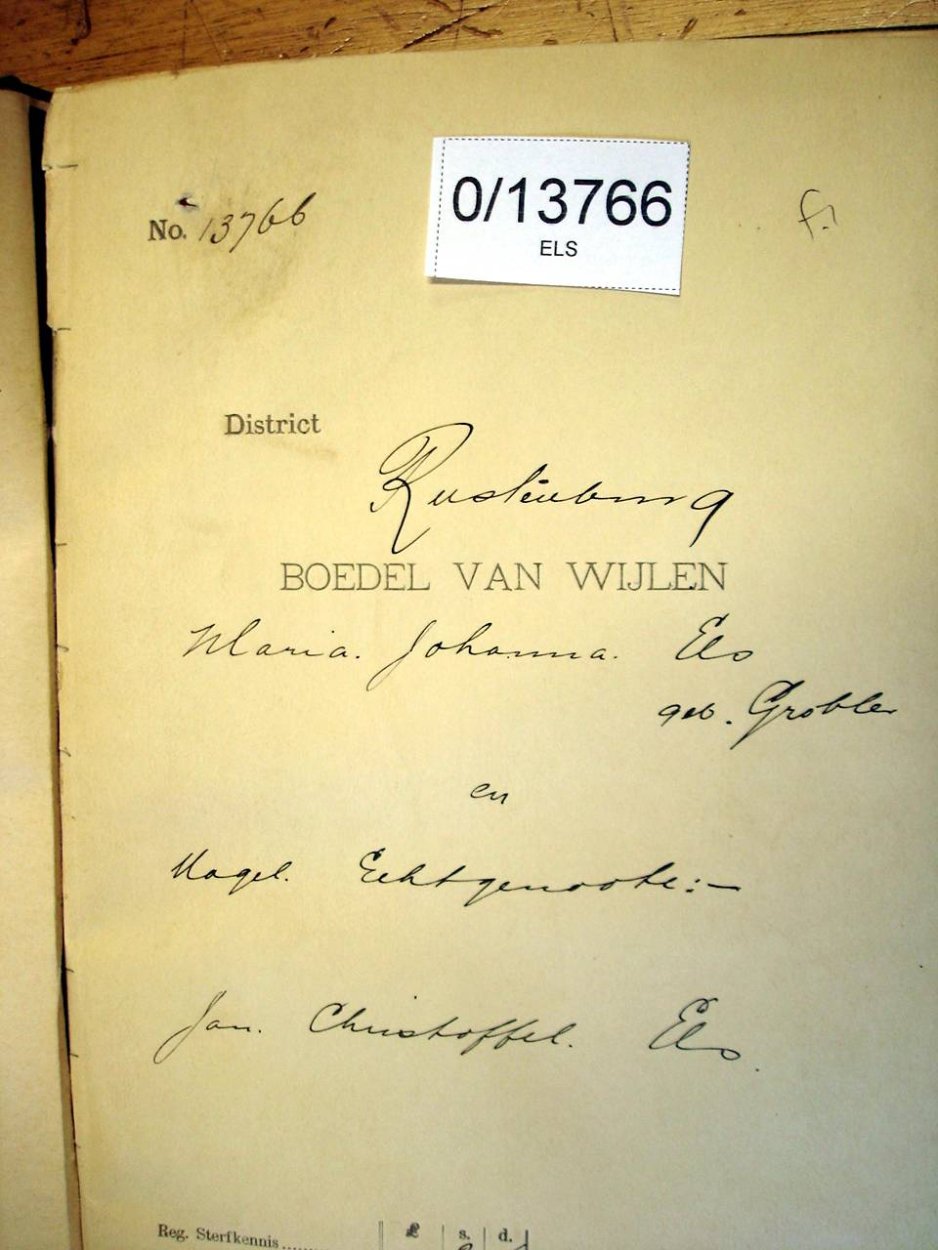 0/13766
ELS
No. 13766
District
Rustenburg
BOEDEL VAN WIJLEN
Maria. Johanna. Els
geb. Grobler
en
Nagel. Echtgenoote:-
Jan. Christoffel. Els.
Reg. Sterfkennis
£ s. d.